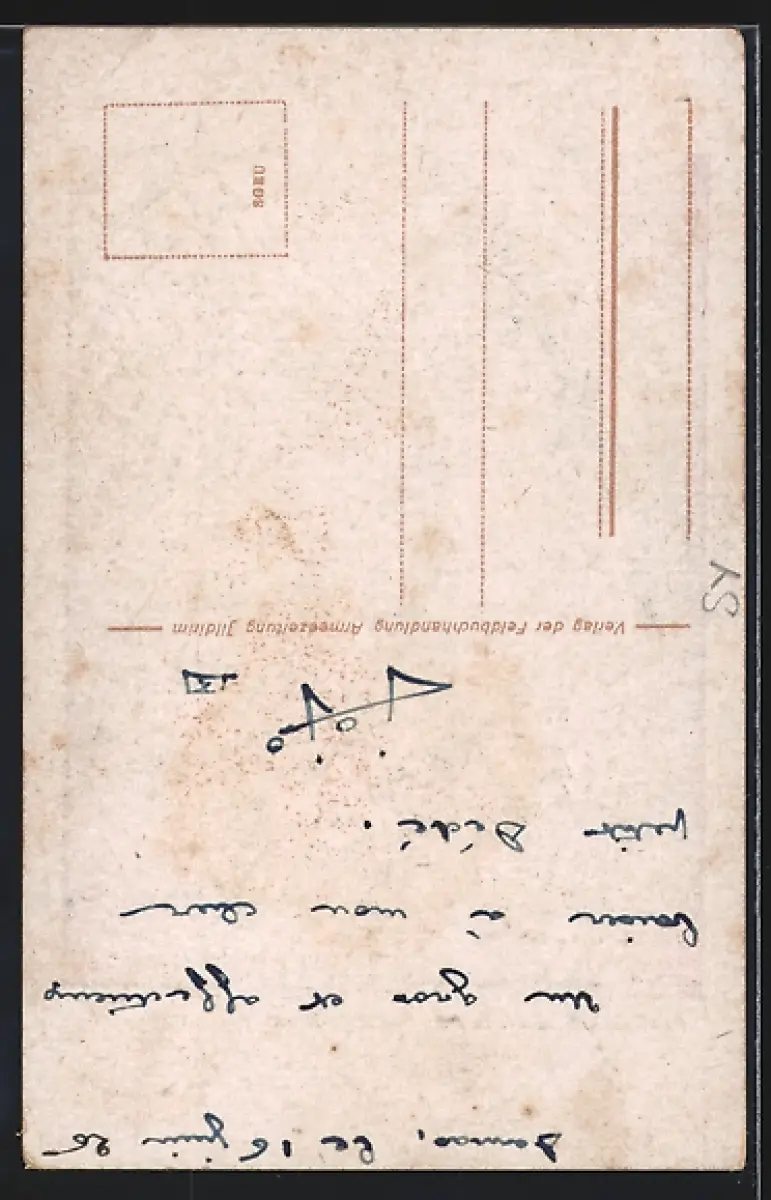 Damas, le 16 juin 26
Un gros et affectueux
baiser à mon cher
petit Dédé.
Verlag der Feldbuchhandlung Armeezeitung Jildirim
SGEU
SY